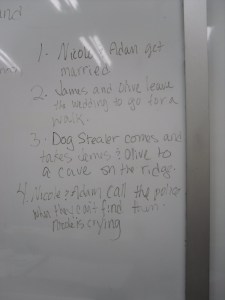 1- Nicole & Adam get
married
2- James and Olive leave
the wedding to go for a
walk.
3- Dog Stealer comes and
takes James & Olive to
a cave on the ridge.
4. Nicole & Adam call the police
when they can't find them.
crying